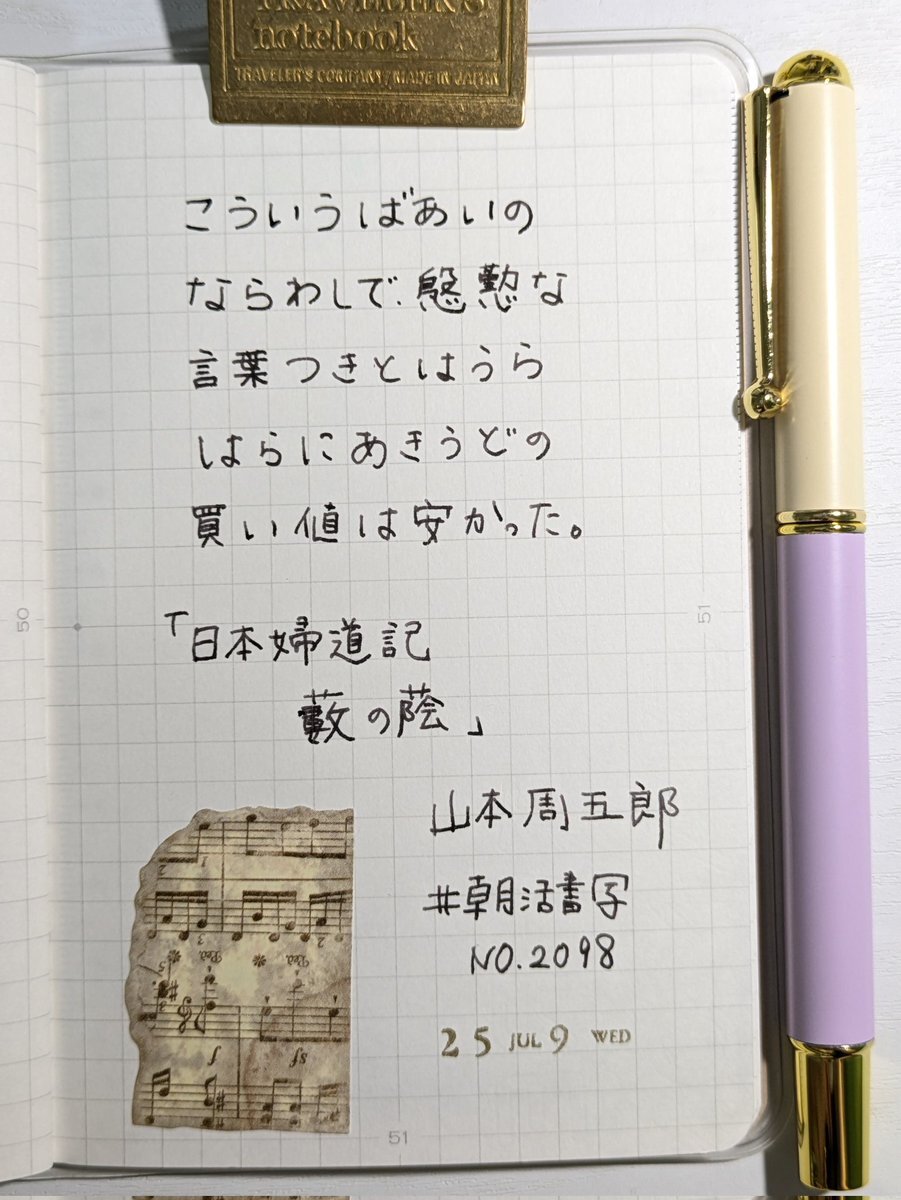 TRAVELER'S
notebook
TRAVELER'S COMPANY/MADE IN JAPAN
こういうばあいの
ならわしで、慇懃な
言葉つきとはうら
はらにあきうどの
買い値は安かった。
50
51
「日本婦道記
藪の蔭」
山本周五郎
#朝活書写
NO.2098
25 JUL 9 WED
51